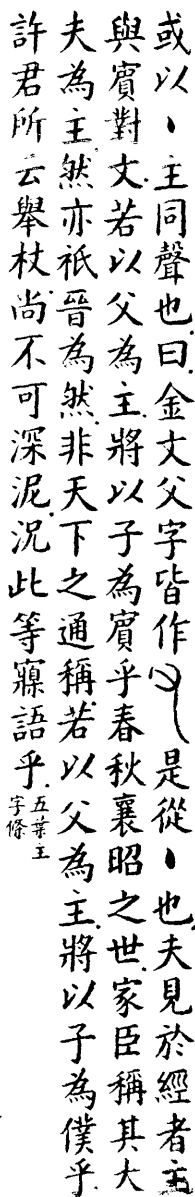 或以丶主同聲也曰金文父字皆作是從丶也夫見於經者主
與賓對文若以父為主將以子為賓乎春秋襄昭之世家臣稱其大
夫為主然亦祇晉為然非天下之通稱若以父為主將以子為僕乎
許君所云舉杖尚不可深泥況此等寱語乎
五葉主
字條